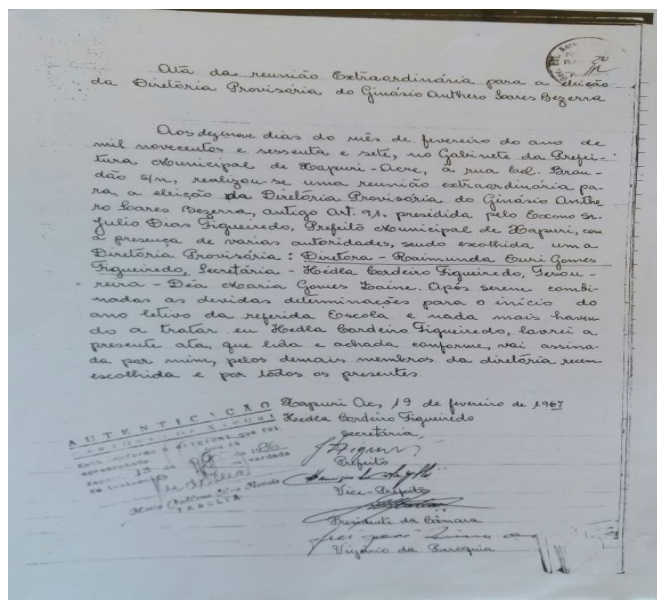 Ata da reunião Extraordinária para a eleição
da Diretória Provisória do Ginásio Anthero Soares Bezerra
Aos dezenove dias do mês de fevereiro do ano de
mil novecentos e sessenta e sete, no Gabinete da Prefei-
tura Municipal de Xapuri-Acre, à rua Cel. Bran-
dão s/n, realizou-se uma reunião extraordinária pa-
ra, a eleição da Diretória Provisória do Ginásio Anthe
ro Soares Bezerra, antigo Art. 91. presidida pelo Excmo Sr.
Julio Dias Figueiredo, Prefeito Municipal de Xapuri, com
a presença de varias autoridades, sendo escolhida uma
Diretória Provisória: Diretora - Raimunda Euri Gomes
Figueiredo, Secretária - Hédla Cordeiro Figueiredo, Tesou-
reira - Déa Maria Gomes Zaine. Após serem combi-
nadas as devidas determinações para o início do
ano letivo da referida Escola e nada mais haven-
do a tratar eu Hedla Cordeiro Figueiredo, lavrei a
presente ata, que lida e achada conforme, vai assina-
da por mim, pelos demais membros da diretória recem
escolhida e por todos os presentes
Xapuri Ac, 19 de fevereiro de 1967
Hedla Cordeiro Figueiredo
Secretária,
Prefeito
Vice-Prefeito
Presidente da Câmara
Vigário da Paroquia
AUTENTICAÇÃO
Está conforme o original que foi
apresentado
Xapuri 13 de de 1986
Em testemunho da verdade
TABELIÃ